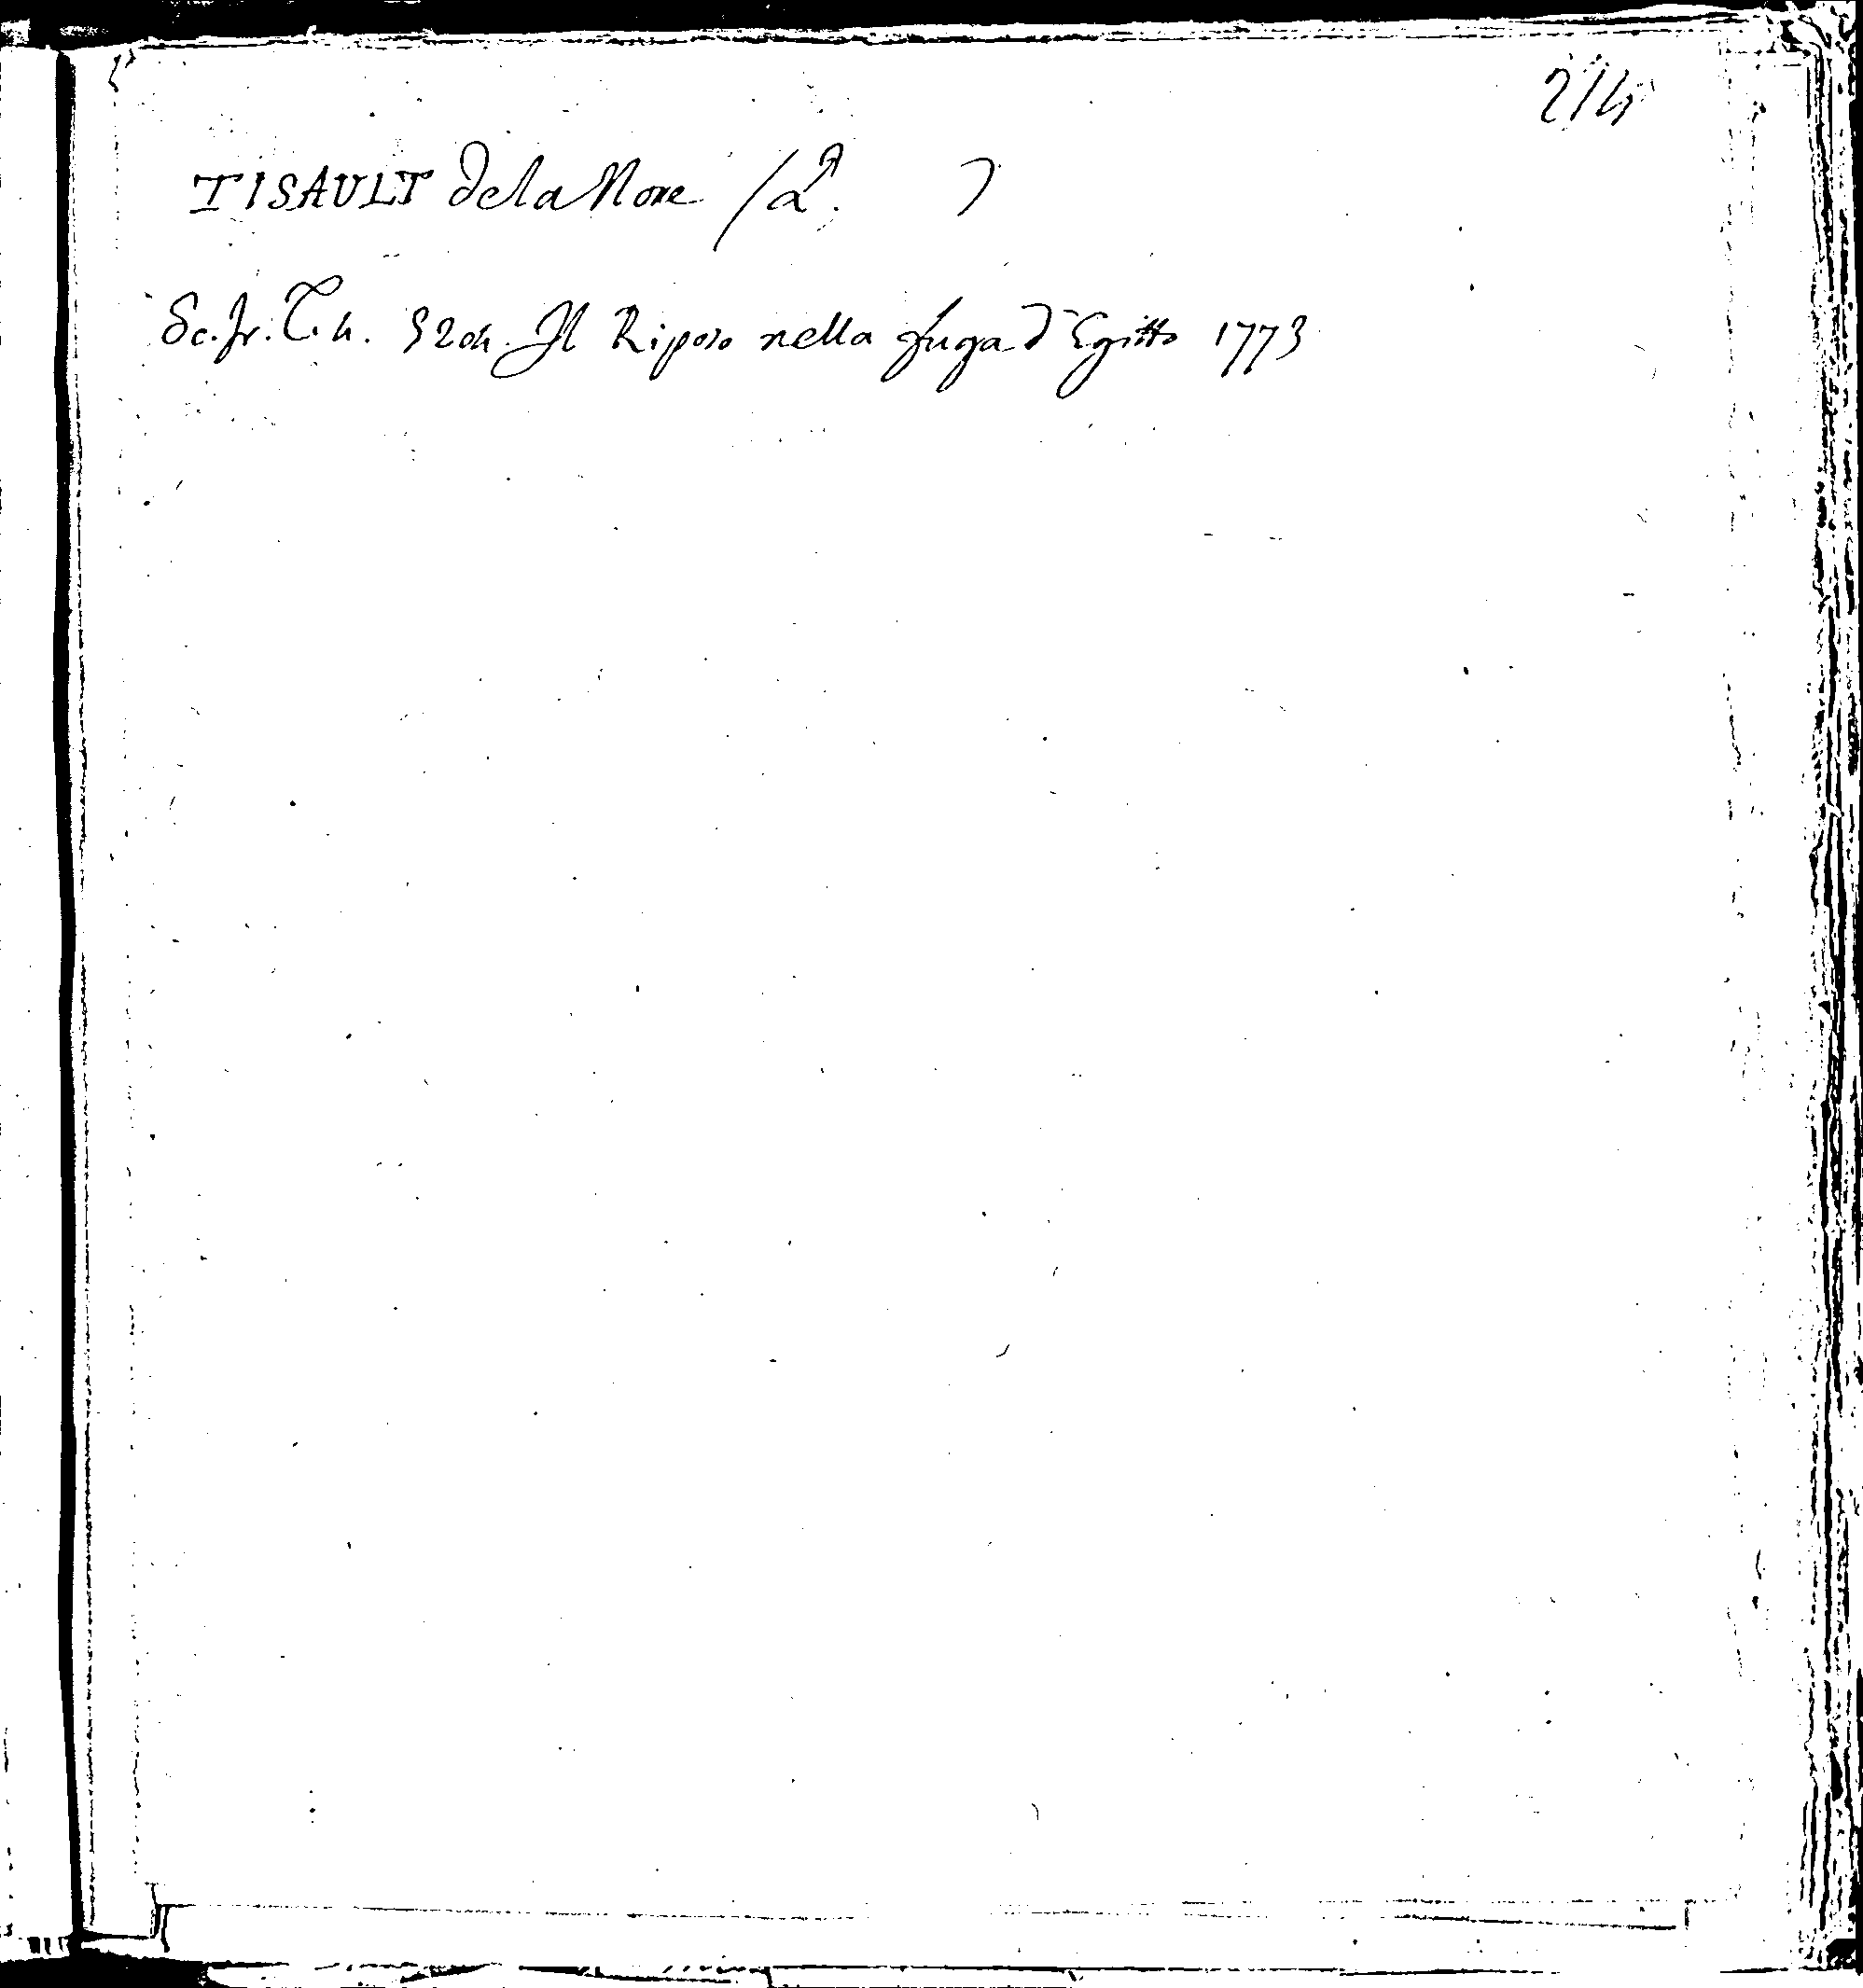 214
TISAULT dela Nore (
Sc. fr. T. h. 520h. Il Riposo nella fuga d'Egitto 1773